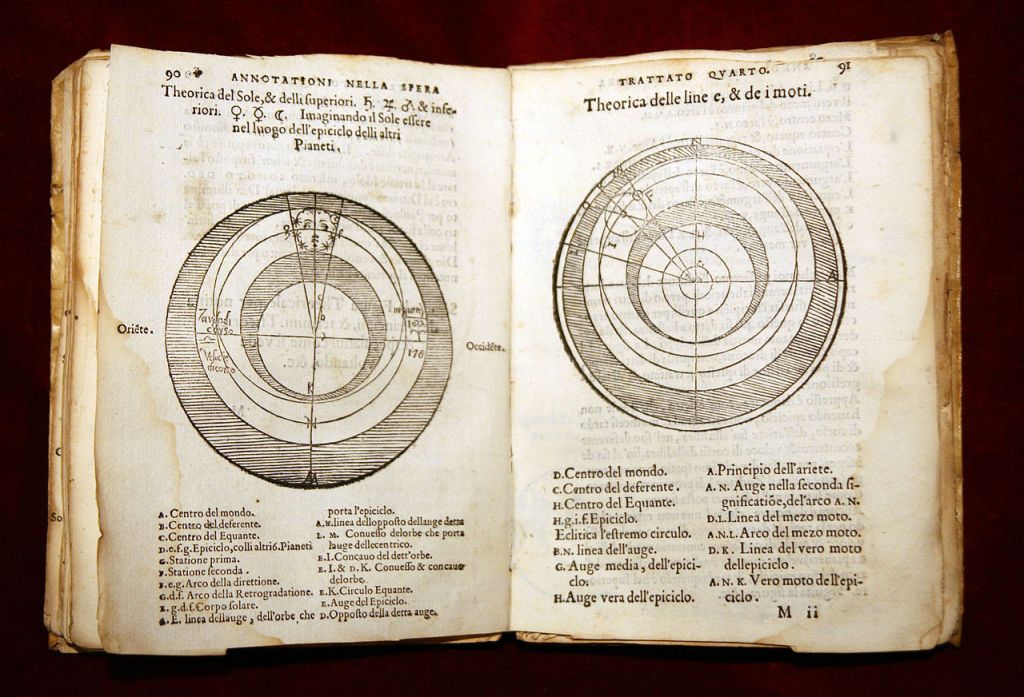 90
ANNOTATIONI NELLA SPERA
Theorica del Sole, & delli superiori. ♄. ♃. ♂ & infe-
riori. ♀. ☿. ☾. Imaginando il Sole essere
nel luogo dell'epiciclo delli altri
Pianeti,
Oriẽte.
Occidẽte.
A. Centro del mondo.
B. Centro del deferente.
C. Centro del Equante.
D.e.f.g. Epiciclo, colli altri 6. Pianeti
G. Statione prima.
F. Statione seconda.
F.e.g. Arco della direttione.
G.d.f. Arco della Retrogradatione.
E.g.d.f. Corpo solare.
A.E. linea dellauge, dell'orbe che
porta l'epiciclo.
A.N. linea dellopposto dellauge detta
L. M. Conuesso delorbe che porta
lauge delleccentrico.
E.I. Concauo del dett'orbe.
E.I. & D.K. Conuesso & concauo
delorbe.
E.K. Circulo Equante.
E. Auge del Epiciclo.
D. Opposto della detta auge.
TRATTATO QVARTO.
91
Theorica delle line e, & de i moti.
D. Centro del mondo.
C. Centro del deferente.
H. Centro del Equante.
H.g.i.f. Epiciclo.
Eclitica l'estremo circulo.
B.N. linea dell'auge.
G. Auge media, dell'epici-
clo.
H. Auge vera dell'epiciclo.
A. Principio dell'ariete.
A. N. Auge nella seconda si-
gnificatiõe, del'arco A. N.
D.L. Linea del mezo moto.
A.N.L. Arco del mezo moto.
D. K. Linea del vero moto
dellepiciclo.
A. N. K. Vero moto dell'epi-
ciclo.
M ii